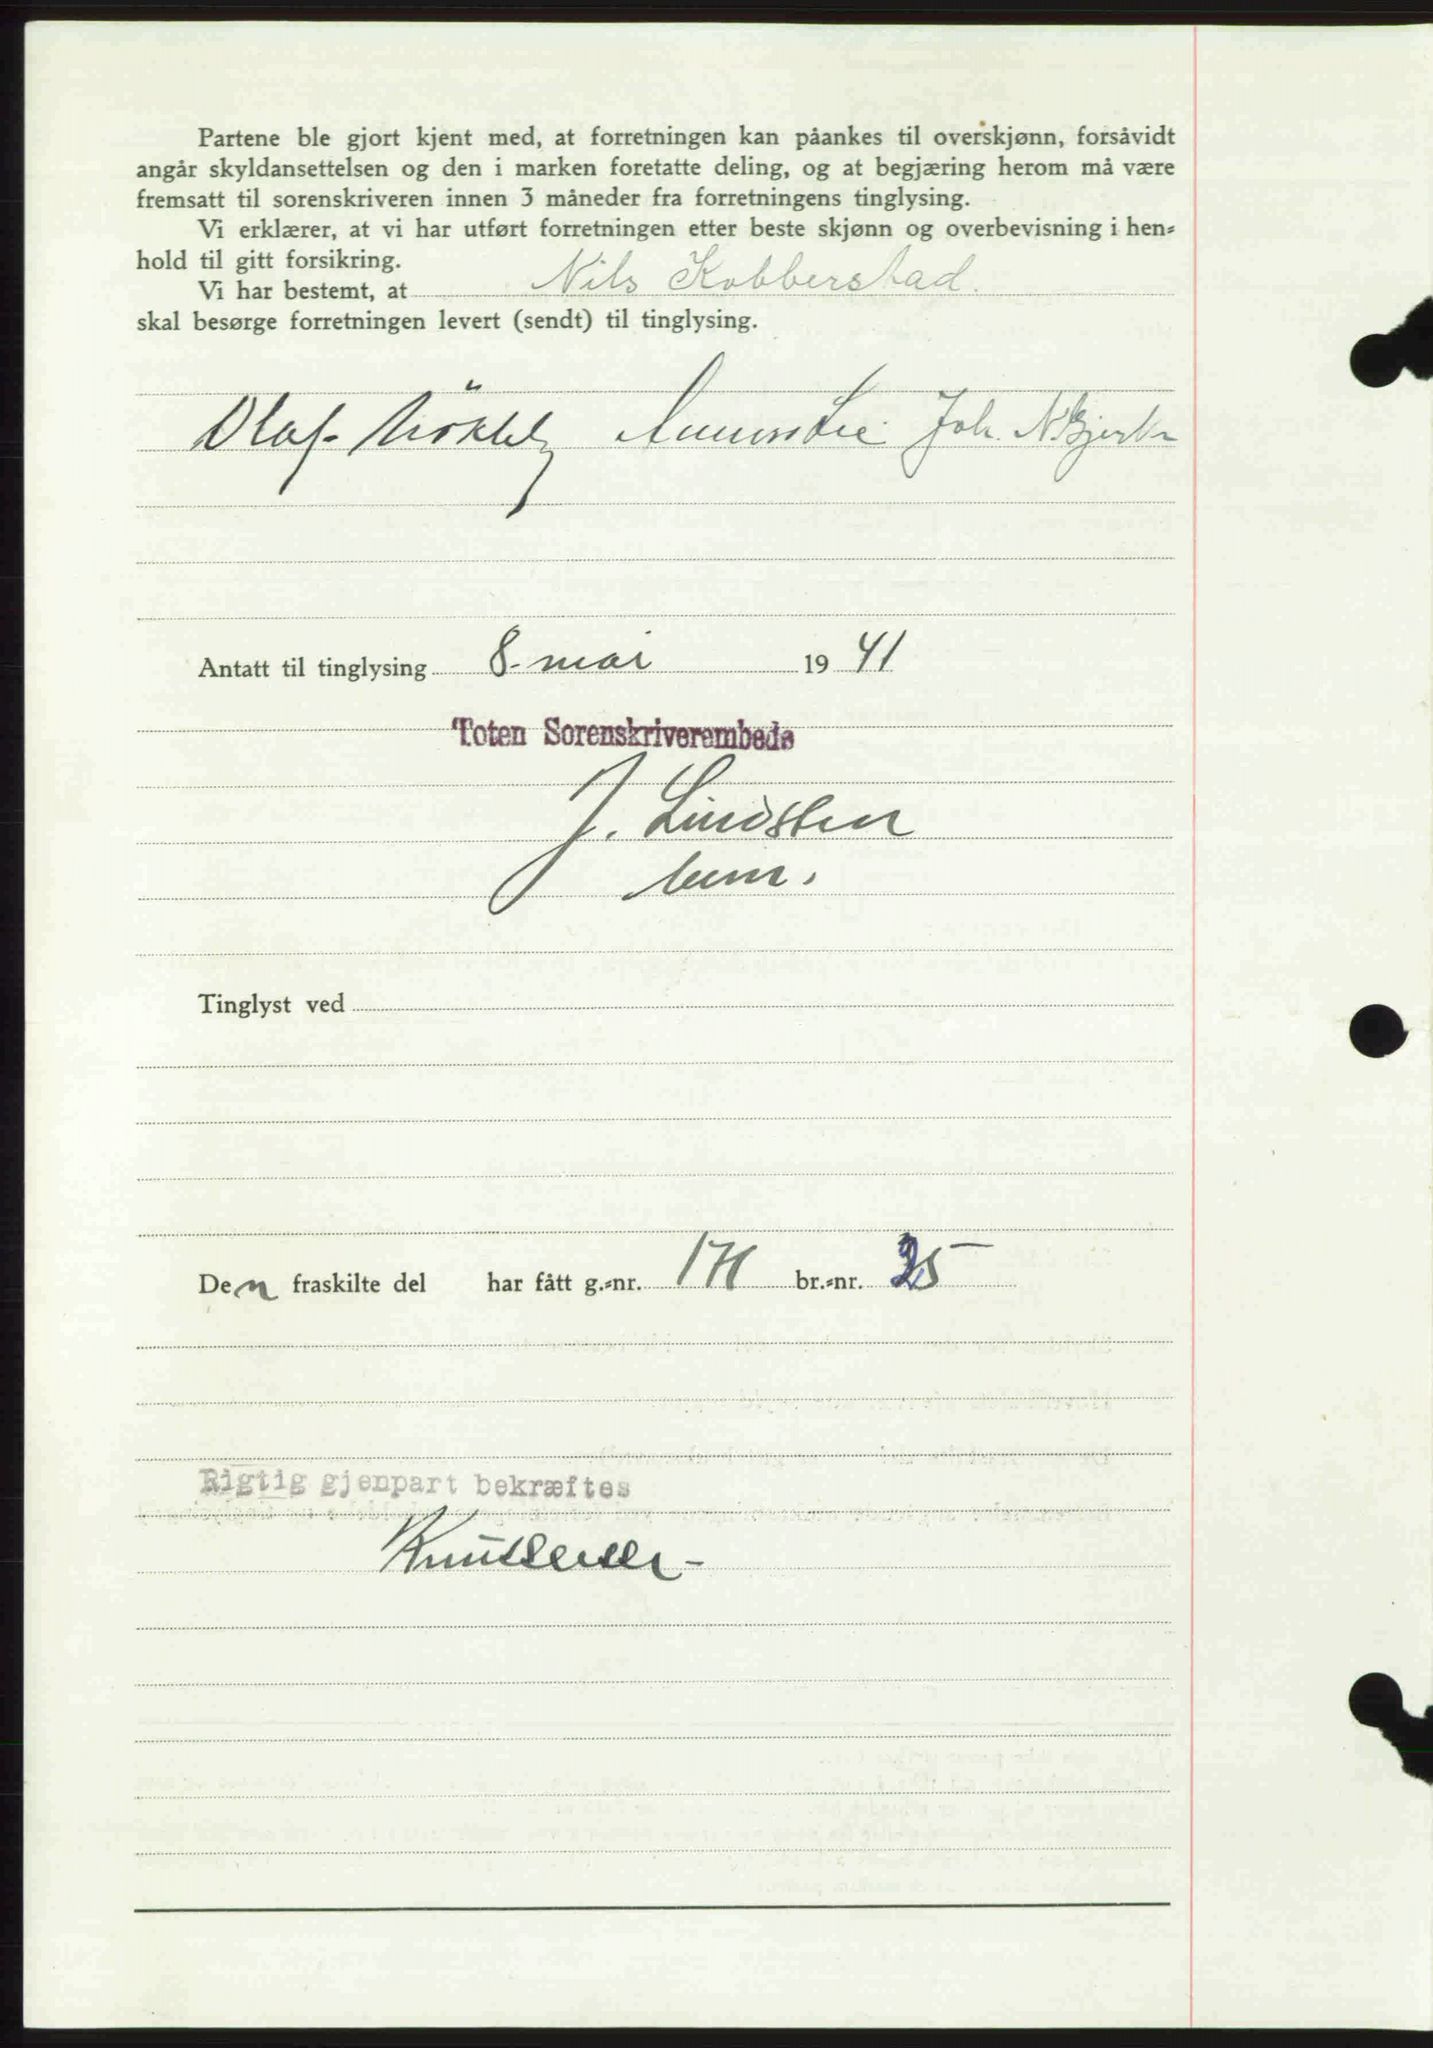 Partene ble gjort kjent med, at forretningen kan påankes til overskjønn, forsåvidt
angår skyldansettelsen og den i marken foretatte deling, og at begjæring herom må være
fremsatt til sorenskriveren innen 3 måneder fra forretningens tinglysing.
Vi erklærer, at vi har utført forretningen etter beste skjønn og overbevisning i hen=
hold til gitt forsikring.
Vi har bestemt, at Nils Kobberstad.
skal besørge forretningen levert (sendt) til tinglysing.
Olaf Joh. N.
Antatt til tinglysing 8. mai 1941
Toten Sorenskriverembede
J. Lindsten
Tinglyst ved
Den fraskilte del har fått g.=nr. br.=nr. 25
Rigtig gjenpart bekræftes